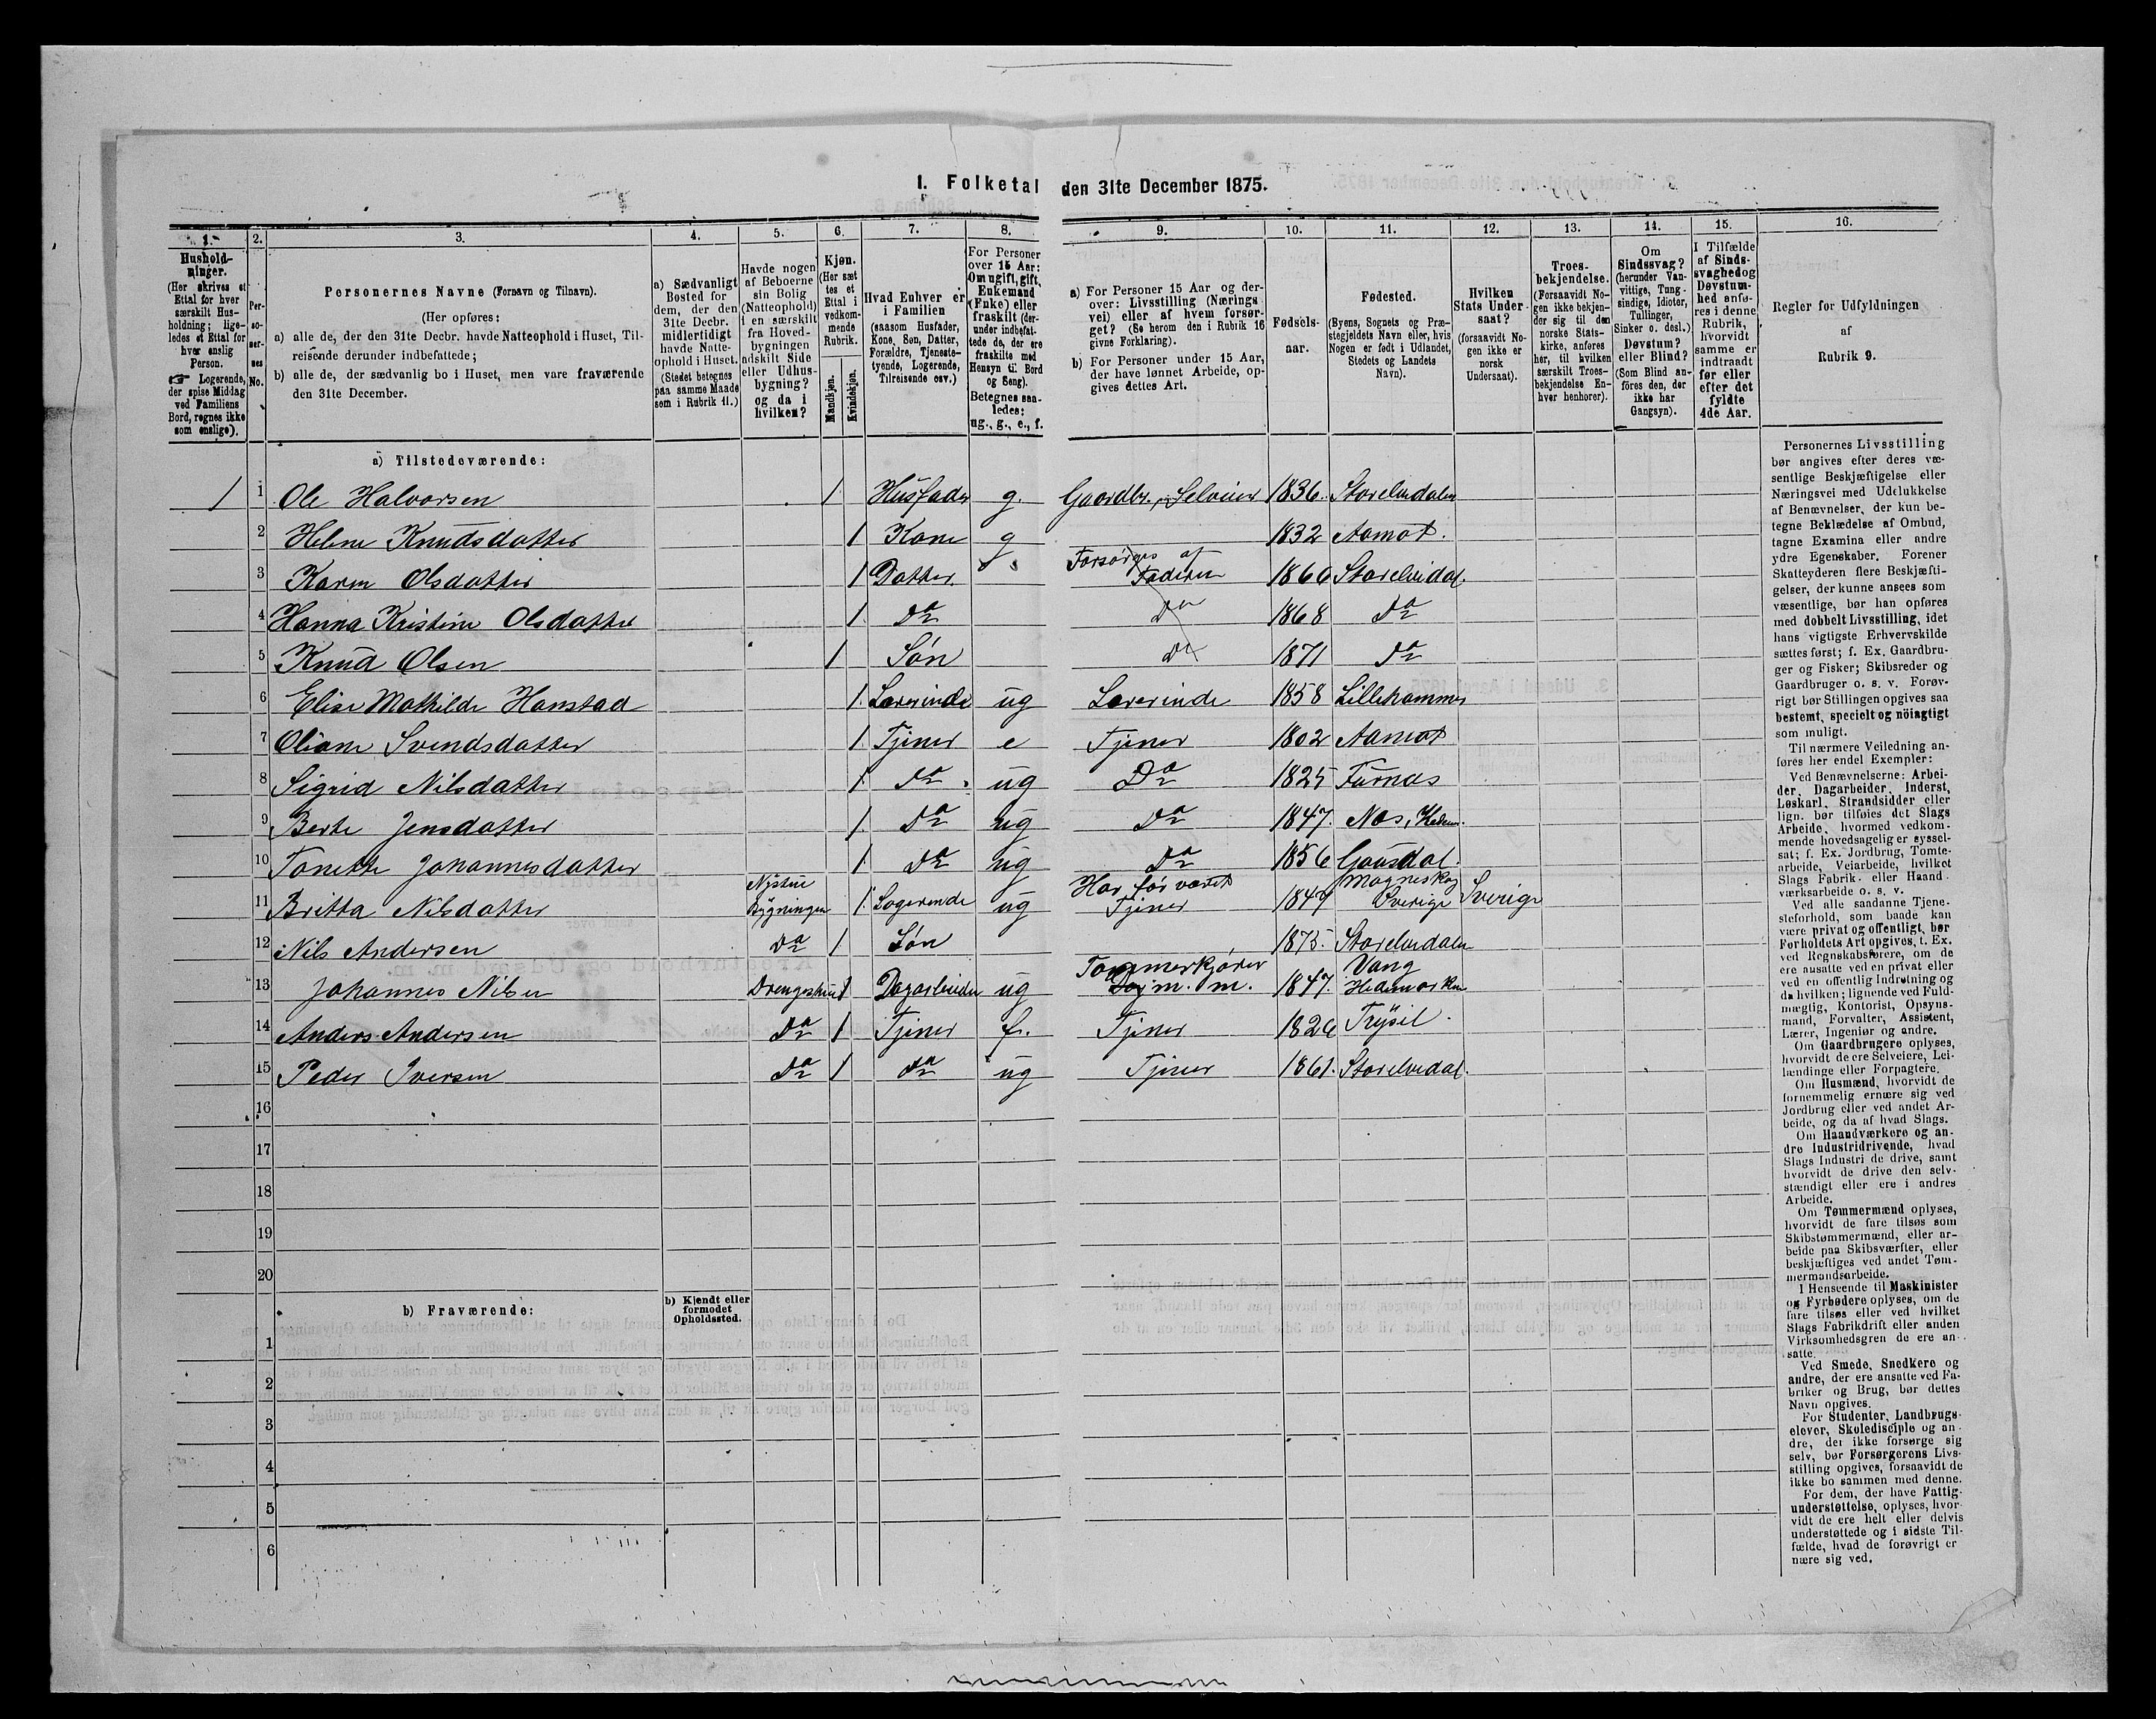 1. Folketal den 31te December 1875.
1. 2. 3. 4. 5. 6. 7. 8. 9. 10. 11. 12. 13. 14. 15. 16.
Husholdninger.
(Her skrives et
Ettal for hver
særskilt Hus-
holdning; lige-
ledes et Ettal for
hver enslig
Person.
☞ Logerende,
der spise Middag
ved Familiens
Bord, regnes ikke
som enslige).
Per-
so-
ner-
nes
No.
Personernes Navne (Fornavn og Tilnavn).
(Her opføres:
a) alle de, der den 31te Decbr. havde Natteophold i Huset, Til-
reisende derunder indbefattede;
b) alle de, der sædvanlig bo i Huset, men vare fraværende
den 31te December.
a) Sædvanligt
Bosted for
dem, der den
31te Decbr.
midlertidigt
havde Natte-
ophold i Huset.
(Stedet betegnes
paa samme Maade
som i Rubrik 11.)
Havde nogen
af Beboerne
sin Bolig
(Natteophold)
i en særskilt
fra Hoved-
bygningen
adskilt Side
eller Udhus-
bygning?
og da i
hvilken?
Kjøn.
(Her sæt
tes et
Ettal i
vedkom-
mende
Rubrik.
Mandkjøn.
Kvindekjøn.
Hvad Enhver er
i Familien
(saasom Husfader,
Kone, Søn, Datter,
Forældre, Tjeneste-
tyende, Logerende,
Tilreisende osv.)
For Personer
over 15 Aar:
Om ugift, gift,
Enkemand
(Enke) eller
fraskilt (der-
under indbefat-
tede de, der ere
fraskilte med
Hensyn til Bord
og Seng).
Betegnes saa-
ledes:
ug., g., e., f.
a) For Personer 15 Aar og der-
over: Livsstilling (Nærings
vei) eller af hvem forsør-
get? (Se herom den i Rubrik 16
givne Forklaring).
b) For Personer under 15 Aar,
der have lønnet Arbeide, op-
gives dettes Art.
Fødsels-
aar.
Fødested.
(Byens, Sognets og Præ-
stegjeldets Navn eller, hvis
Nogen er født i Udlandet,
Stedets og Landets
Navn).
Hvilken
Stats Under-
saat?
(forsaavidt No-
gen ikke er
norsk
Undersaat).
Troes-
bekjendelse.
(Forsaavidt No-
gen ikke bekjen-
der sig til den
norske Stats-
kirke, anføres
her, til hvilken
særskilt Troes-
bekjendelse En-
hver henhører).
Om
Sindssvag?
(herunder Van-
vittige, Tung-
sindige, Idioter,
Tullinger,
Sinker o. desl.)
Døvstum?
eller Blind?
(Som Blind an-
føres den, der
ikke har
Gangsyn).
I Tilfælde
af Sinds-
svaghed og
Døvstum-
hed anfø-
res i denne
Rubrik,
hvorvidt
samme er
indtraadt
før eller
efter det
fyldte
4de Aar.
Regler for Udfyldningen
af
Rubrik 9.
a) Tilstedeværende:
1 1 Ole Halvorsen 1 Husfader g. Gaardbr. Selveier 1836. Storelvedalen
2 Helene Knudsdatter 1 Kone g 1832 Aamot.
3 Karen Olsdatter 1 Datter Forsørges af Faderen 1866 Storelvedal.
4 Hanna Kristine Olsdatter 1 Do Do 1868 Do
5 Knud Olsen 1 Søn Do 1871 Do
6 Elise Mathilde Hanstad 1 Lærerinde ug Lærerinde 1858 Lillehammer
7 Oliane Svendsdatter 1 Tjener e Tjener 1802 Aamot
8 Sigrid Nilsdatter 1 Do ug Do 1825 Furnæs
9 Berte Jensdatter 1 Do ug Do 1847. Næs, Hedem.
10 Tonette Johannesdatter 1 Do ug Do 1856 Gausdal.
11 Britta Nilsdatter Nystue Bygningen 1 Logerende ug Har før været Tjener 1847 Magneskog Sverige Sverige
12 Nils Andersen Do 1 Søn 1875. Storelvedalen
13 Johannes Nilsen Drengestue 1 Dagarbeider ug Tømmerkjører m. m. 1847. Vang Hedemarken
14 Anders Andersen Do 1 Tjener f. Tjener 1826 Trysil.
15 Peder Iversen Do 1 Do ug Tjener 1861. Storelvedal.
16
17
18
19
20
b) Fraværende:
b) Kjendt eller
formodet
Opholdssted.
1
2
3
4
5
6
Personernes Livsstilling
bør angives efter deres væ-
sentlige Beskjæftigelse eller
Næringsvei med Udelukkelse
af Benævnelser, der kun be-
tegne Beklædelse af Ombud,
tagne Examina eller andre
ydre Egenskaber. Forener
Skatteyderen flere Beskjæfti-
gelser, der kunne ansees som
væsentlige, bør han opføres
med dobbelt Livsstilling, idet
hans vigtigste Erhvervskilde
sættes først; f. Ex. Gaardbru-
ger og Fisker; Skibsreder og
Gaardbruger o. s. v. Forøv-
rigt bør Stillingen opgives saa
bestemt, specielt og nöiagtigt
som muligt.
Til nærmere Veiledning an-
føres her endel Exempler:
Ved Benævnelserne: Arbei-
der, Dagarbeider, Inderst,
Løskarl, Strandsidder eller
lign. bør tilføies det Slags
Arbeide, hvormed vedkom-
mende hovedsagelig er syssel-
sat; f. Ex. Jordbrug, Tomte-
arbeide, Veiarbeide, hvilket
Slags Fabrik- eller Haand-
værksarbeide o. s. v.
Ved alle saadanne Tjene-
steforhold, som baade kan
være privat og offentligt, bør
Forholdets Art opgives, t. Ex.
ved Regnskabsførere, om de
ere ansatte ved en privat eller
ved en offentlig Indretning og
da hvilken; lignende ved Fuld-
mægtig, Kontorist, Opsyns-
mand, Forvalter, Assistent,
Lærer, Ingeniør og andre.
Om Gaardbrugere oplyses,
hvorvidt de ere Selveiere, Lei-
lændinge eller Forpagtere.
Om Husmænd, hvorvidt de
fornemmelig ernære sig ved
Jordbrug eller ved andet Ar-
beide, og da af hvad Slags.
Om Haandværkere og an-
dre Industridrivende, hvad
Slags Industri de drive, samt
hvorvidt de drive den selv-
stændigt eller ere i andres
Arbeide.
Om Tømmermænd oplyses,
hvorvidt de fare tilsøs som
Skibstømmermænd, eller ar-
beide paa Skibsværfter, eller
beskjæftiges ved andet Tøm-
mermandsarbeide.
I Henseende til Maskinister
og Fyrbødere oplyses, om de
fare tilsøs eller ved hvilket
Slags Fabrikdrift eller anden
Virksomhedsgren de ere an-
satte.
Ved Smede, Snedkere og
andre, der ere ansatte ved Fa-
briker og Brug, bør dettes
Navn opgives.
For Studenter, Landbrugs-
elever, Skoledisciple og an-
dre, der ikke forsørge sig
selv, bør Forsørgerens Livs-
stilling opgives, forsaavidt de
ikke bo sammen med denne.
For dem, der have Fattig-
understøttelse, oplyses, hvor-
vidt de ere helt eller delvis
understøttede og i sidste Til-
fælde, hvad de forøvrigt er
nære sig ved.